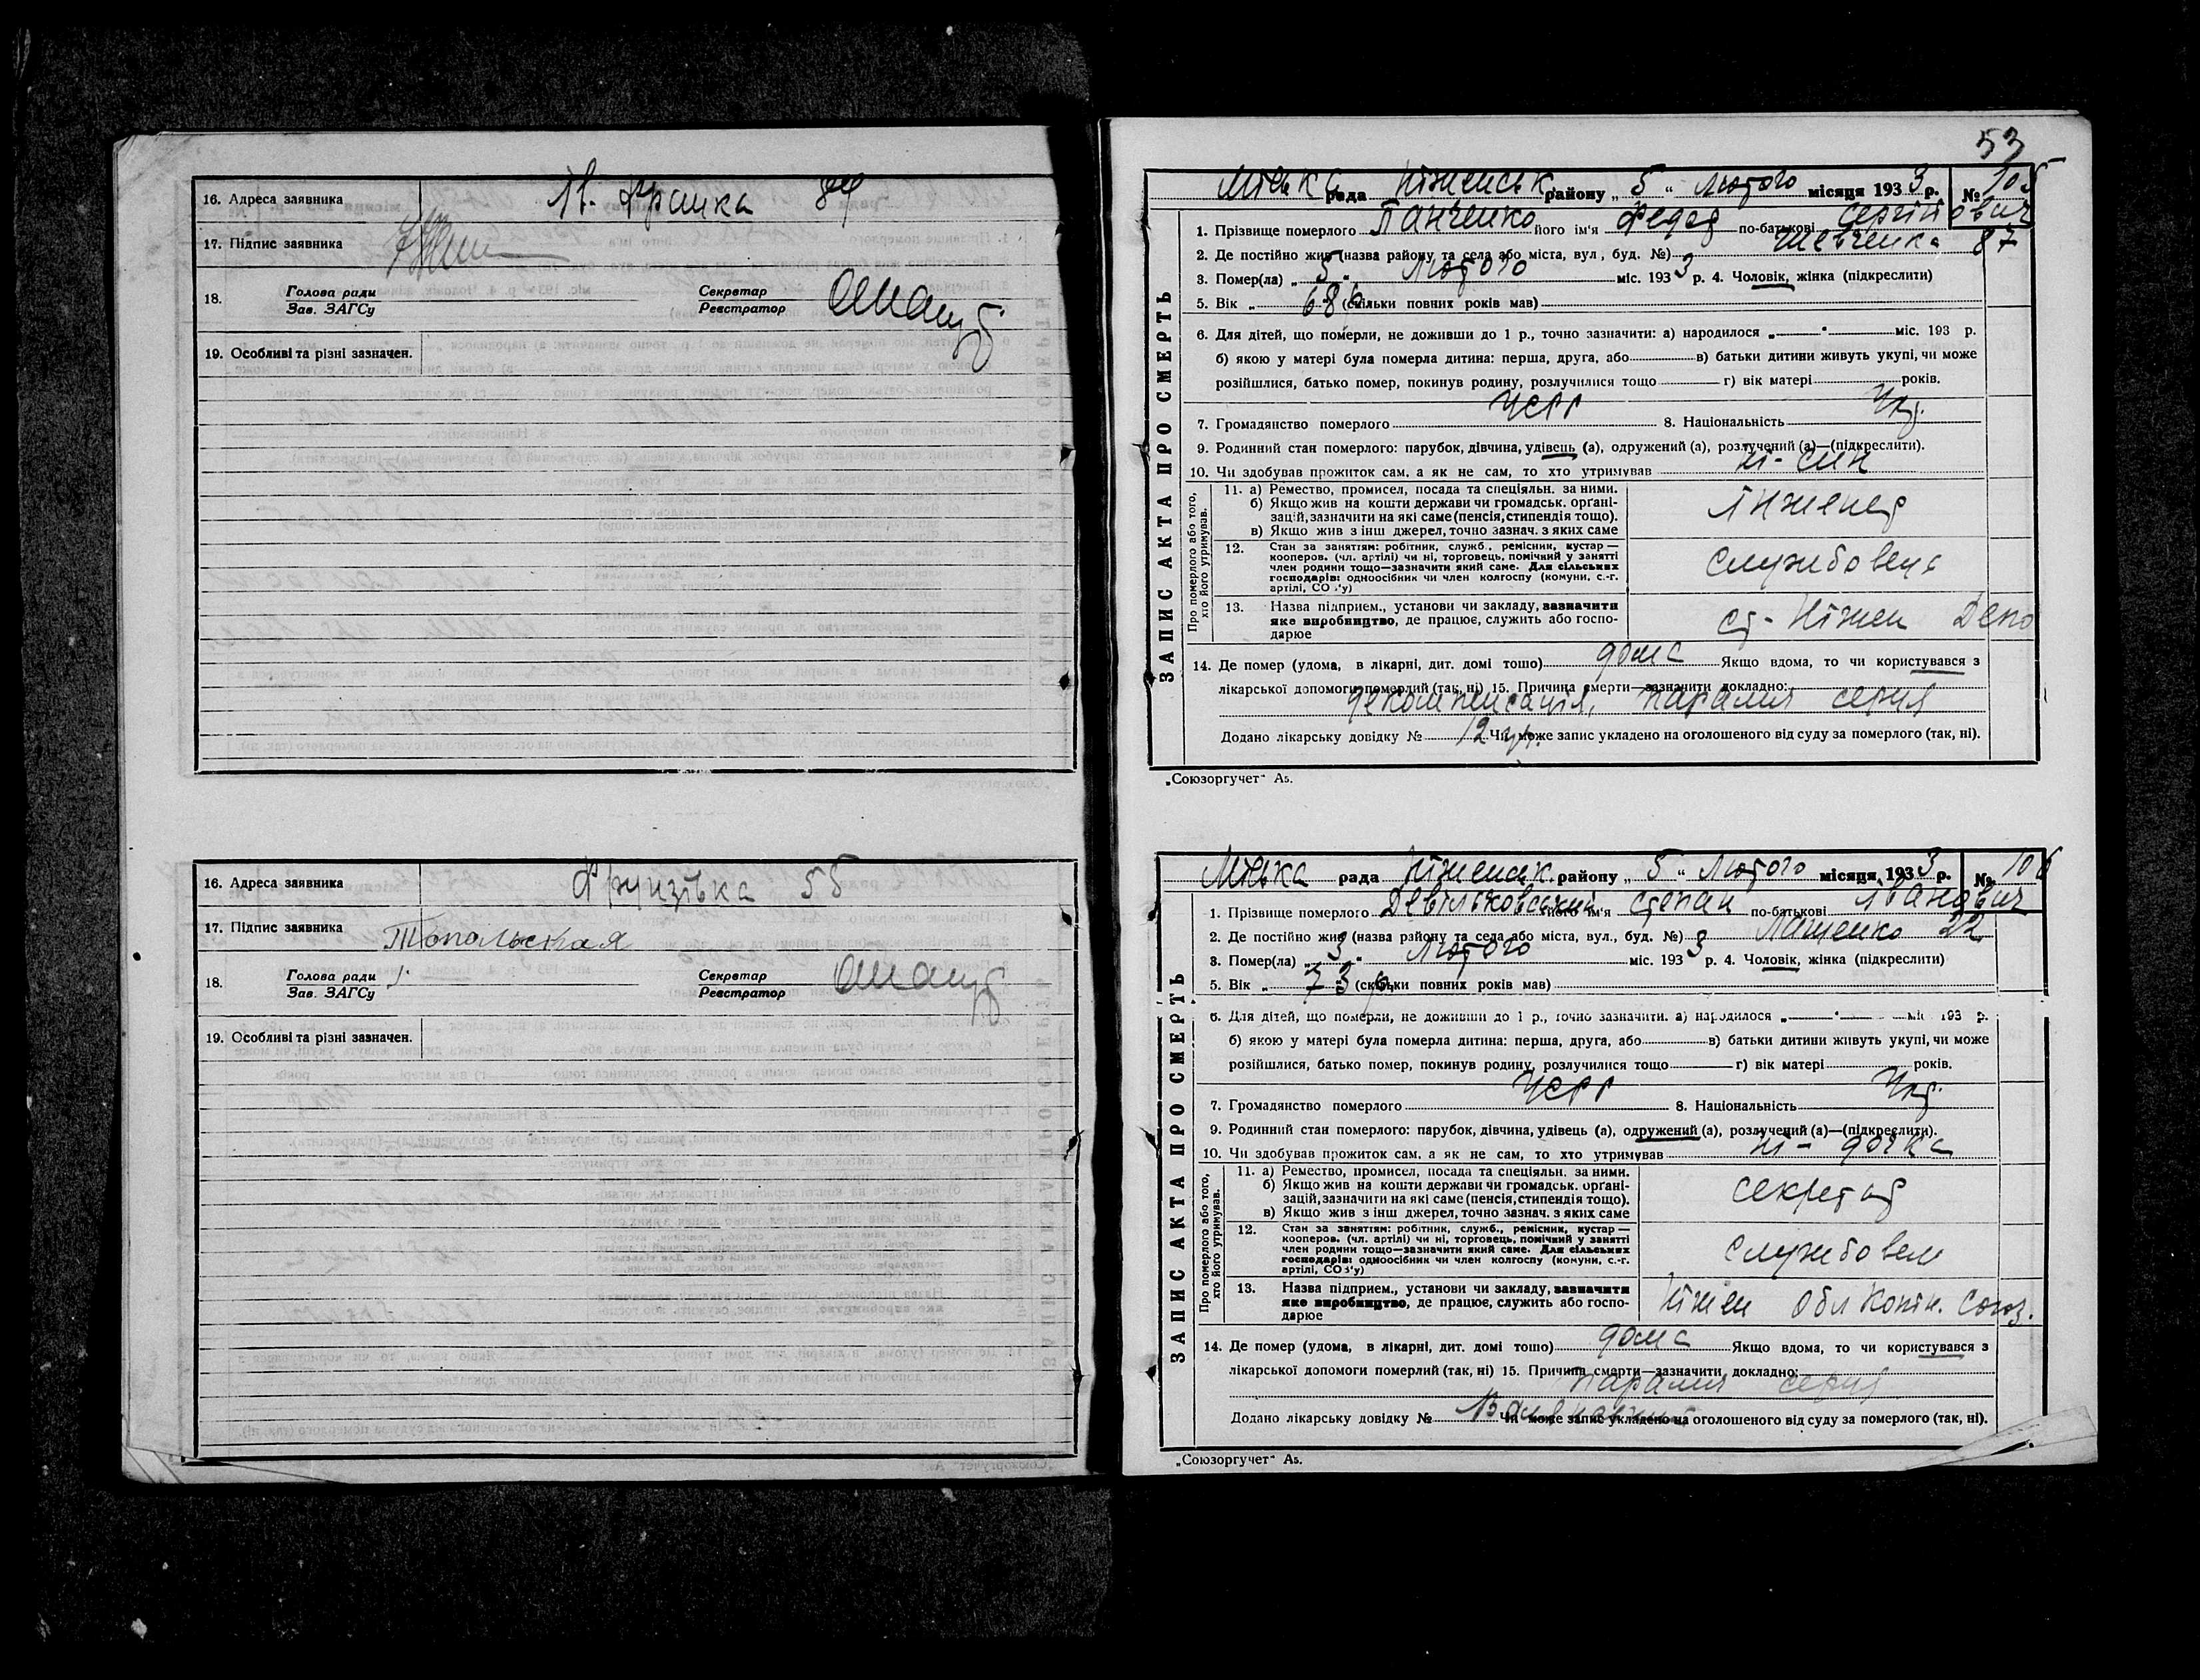 16. Адреса заявника Ів. Франка
17. Підпис заявника
18. Голова ради
Зав. ЗАГСу
Секретар
Реєстратор
19. Особливі та різні зазначен.
16. Адреса заявника Фрунзівка 55
17. Підпис заявника Топольская
18. Голова ради
Зав. ЗАГСу
Секретар
Реєстратор
19. Особливі та різні зазначен.
53
Міська рада Ніженськ. району „ 5 “ Лютого місяця 1933 р. № 105
ЗАПИС АКТА ПРО СМЕРТЬ
1. Прізвище померлого Панченко його ім'я Федор по-батькові Сергійович
2. Де постійно жив (назва району та села або міста, вул., буд. №) Шевченка 87
3. Помер(ла) „ 5 “ Лютого міс. 1933 р. 4. Чоловік, жінка (підкреслити)
5. Вік „ 68 р. (скільки повних років мав)
6. Для дітей, що померли, не доживши до 1 р., точно зазначити: а) народилося „ “ міс. 193 р.
б) якою у матері була померла дитина: перша, друга, або в) батьки дитини живуть укупі, чи може
розійшлися, батько помер, покинув родину, розлучилися тощо г) вік матері років.
7. Громадянство померлого УСРР 8. Національність Укр.
9. Родинний стан померлого: парубок, дівчина, удівець (а), одружений (а), розлучений (а)—(підкреслити).
10. Чи здобував прожиток сам, а як не сам, то хто утримував ні - син
Про померлого або того, хто його утримував.
11. а) Ремество, промисел, посада та спеціяльн. за ними.
б) Якщо жив на кошти держави чи громадськ. орґані-
зацій, зазначити на які саме (пенсія, стипендія тощо).
в) Якщо жив з інш джерел, точно зазнач. з яких саме
Інженер
12. Стан за занятям: робітник, служб., ремісник, кустар —
кооперов. (чл. артілі) чи ні, торговець, помічний у занятті
член родини тощо—зазначити який саме. Для сільських
господарів: одноосібник чи член колгоспу (комуни, с.-г.
артілі, СОЗ'у)
Службовець
13. Назва підприєм., установи чи закладу, зазначити
яке виробництво, де працює, служить або госпо-
дарює
ст- Ніжен Депо
14. Де помер (удома, в лікарні, дит. домі тощо) дома Якщо вдома, то чи користувався з
лікарської допомоги померлий (так, ні) 15. Причина смерти—зазначити докладно:
декомпенсація, параліч серця
Додано лікарську довідку № 12 Чи може запис укладено на оголошеного від суду за померлого (так, ні).
„Союзоргучет“ А5.
Міська рада Ніженськ. району „ 5 “ Лютого місяця 1933 р. № 106
ЗАПИС АКТА ПРО СМЕРТЬ
1. Прізвище померлого Девільковський його ім'я Степан по-батькові Іванович
2. Де постійно жив (назва району та села або міста, вул., буд. №) Лащенко 22
3. Помер(ла) „ 3 “ Лютого міс. 1933 р. 4. Чоловік, жінка (підкреслити)
5. Вік „ 73 р. (скільки повних років мав)
6. Для дітей, що померли, не доживши до 1 р., точно зазначити: а) народилося „ “ міс. 193 р.
б) якою у матері була померла дитина: перша, друга, або в) батьки дитини живуть укупі, чи може
розійшлися, батько помер, покинув родину, розлучилися тощо г) вік матері років.
7. Громадянство померлого УСРР 8. Національність Укр.
9. Родинний стан померлого: парубок, дівчина, удівець (а), одружений (а), розлучений (а)—(підкреслити).
10. Чи здобував прожиток сам, а як не сам, то хто утримував ні - дочка
Про померлого або того, хто його утримував.
11. а) Ремество, промисел, посада та спеціяльн. за ними.
б) Якщо жив на кошти держави чи громадськ. орґані-
зацій, зазначити на які саме (пенсія, стипендія тощо).
в) Якщо жив з інш джерел, точно зазнач. з яких саме
Секретар
12. Стан за занятям: робітник, служб., ремісник, кустар —
кооперов. (чл. артілі) чи ні, торговець, помічний у занятті
член родини тощо—зазначити який саме. Для сільських
господарів: одноосібник чи член колгоспу (комуни, с.-г.
артілі, СОЗ'у)
Службовец
13. Назва підприєм., установи чи закладу, зазначити
яке виробництво, де працює, служить або госпо-
дарює
Ніжен Союз.
14. Де помер (удома, в лікарні, дит. домі тощо) дома Якщо вдома, то чи користувався з
лікарської допомоги померлий (так, ні) 15. Причина смерти—зазначити докладно:
параліч серця
Додано лікарську довідку № Чи може запис укладено на оголошеного від суду за померлого (так, ні).
„Союзоргучет“ А5.